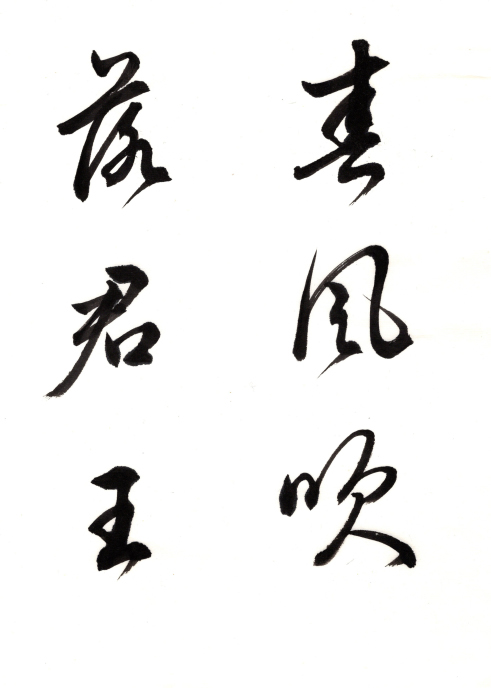 春風吹
落君王